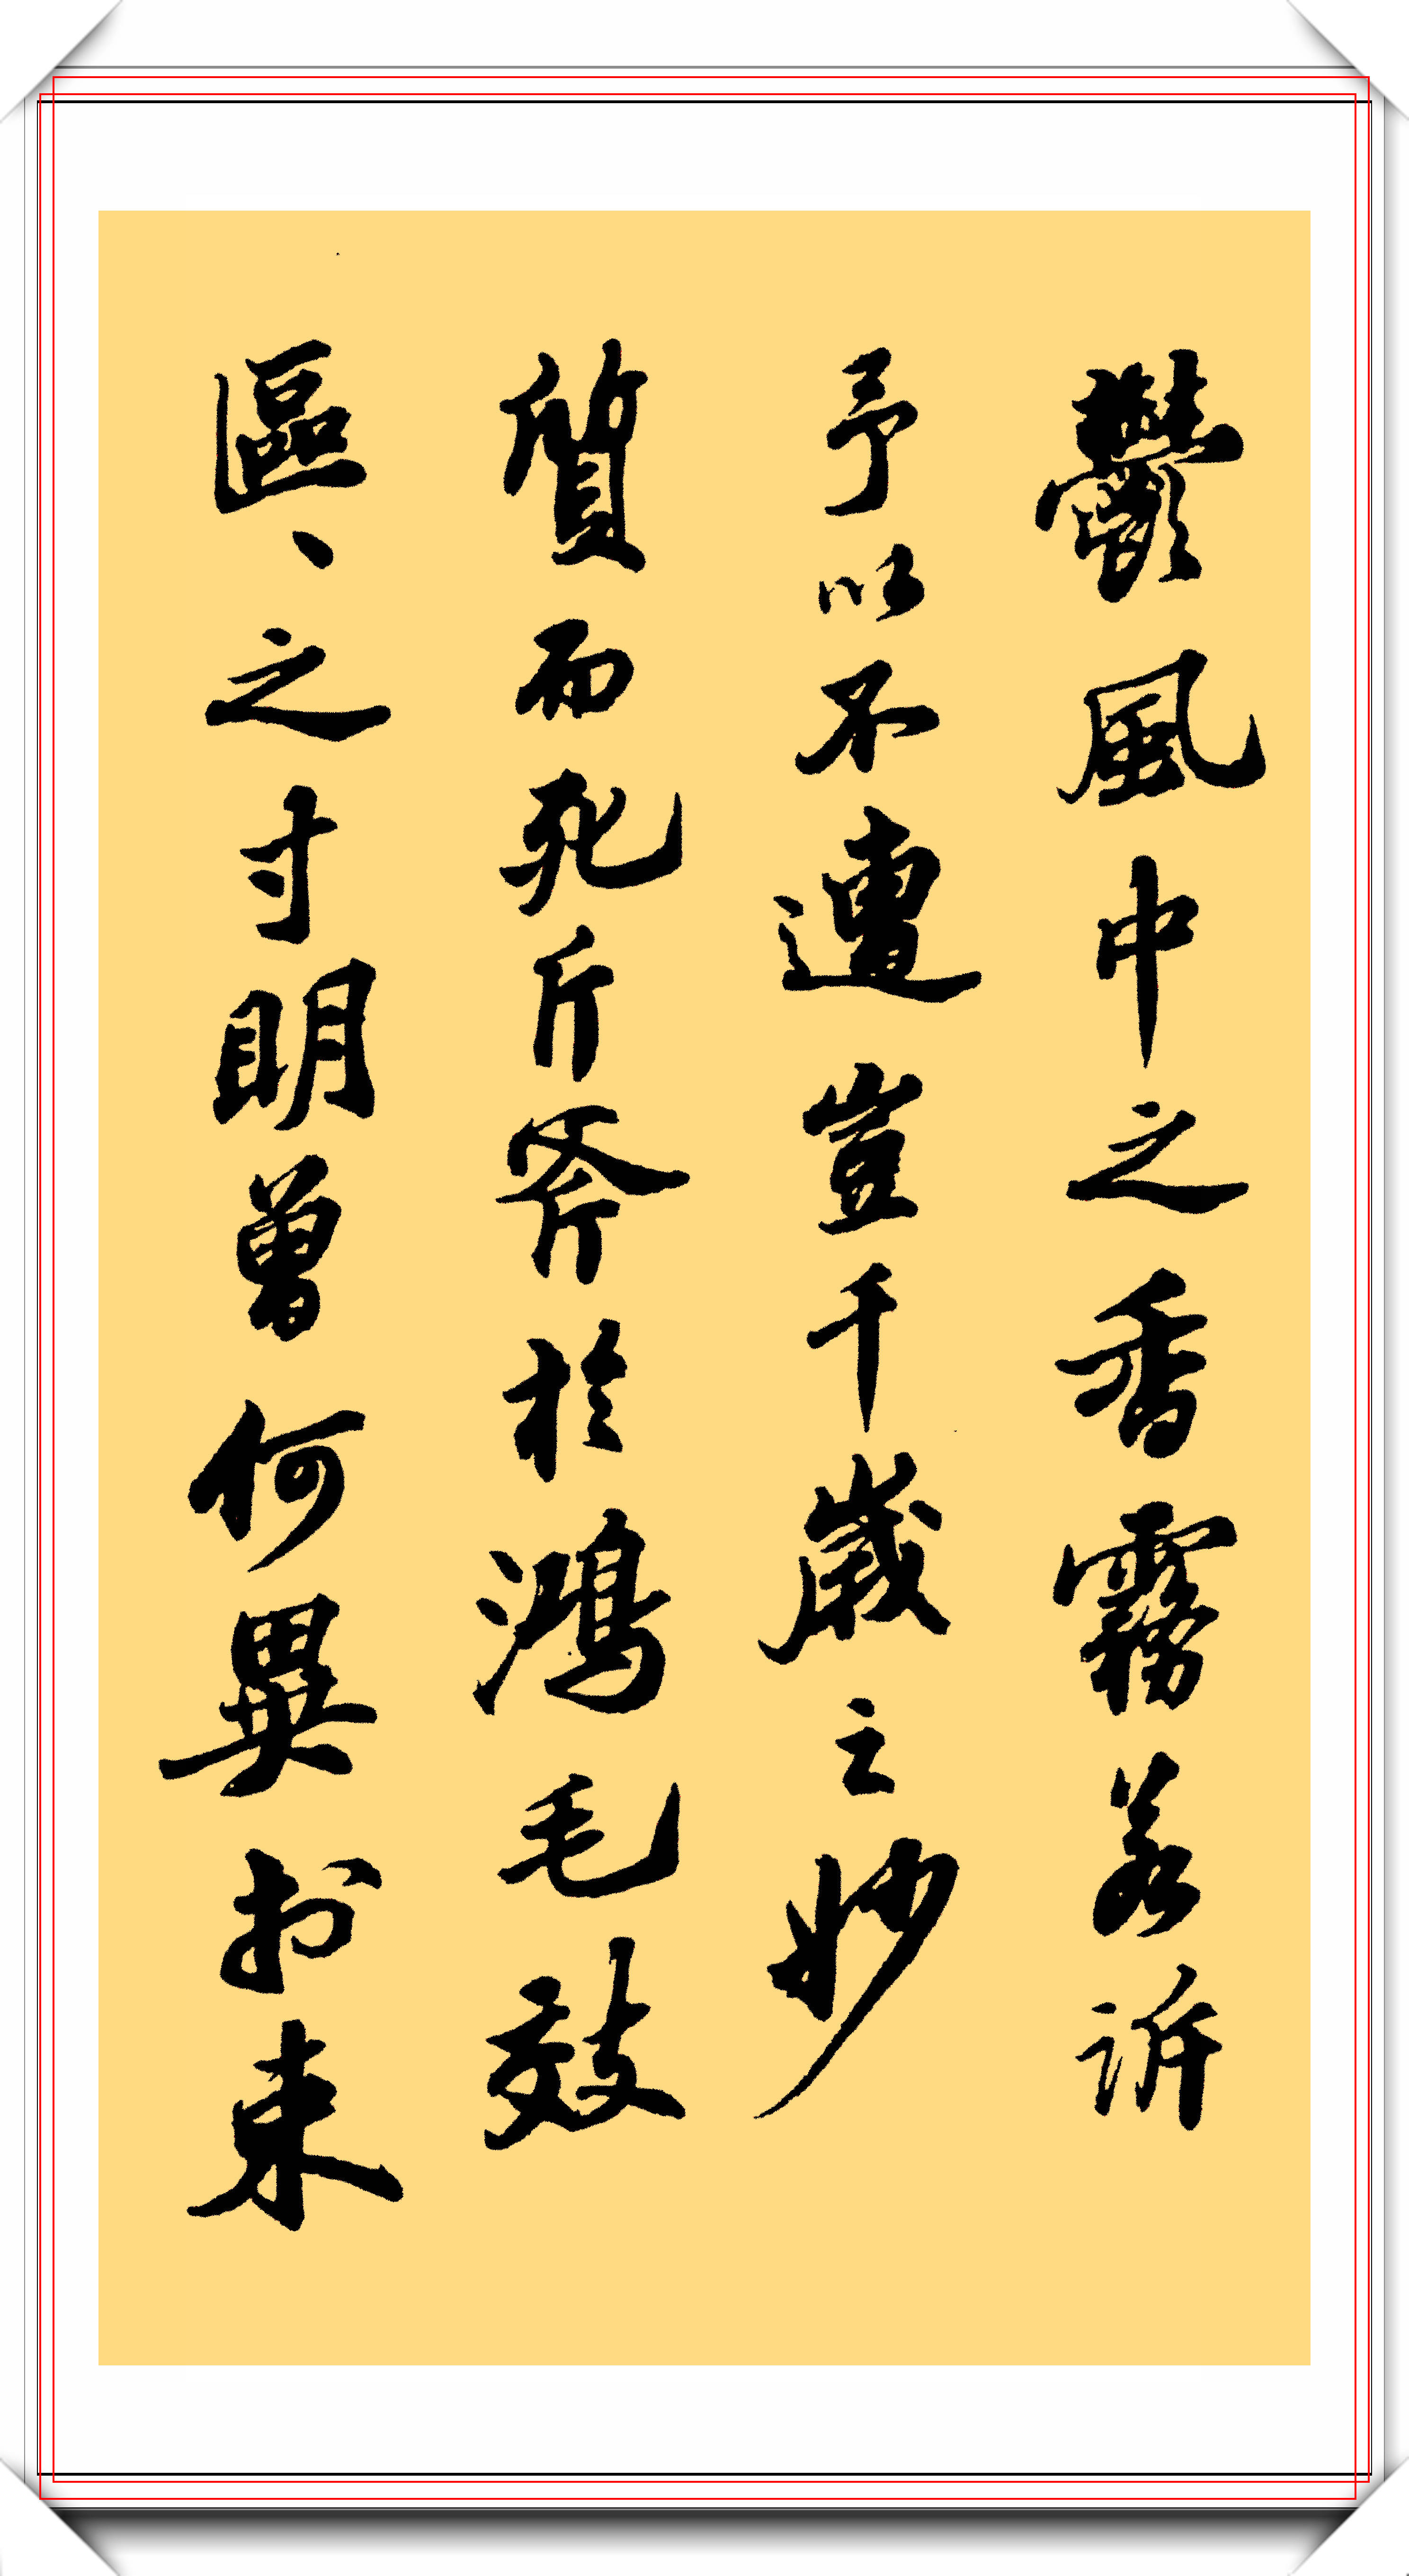 鬱風中之香霧若訴
予以不遭豈千歲之妙
質而死斤斧於鴻毛效
區、之寸明曾何異於束